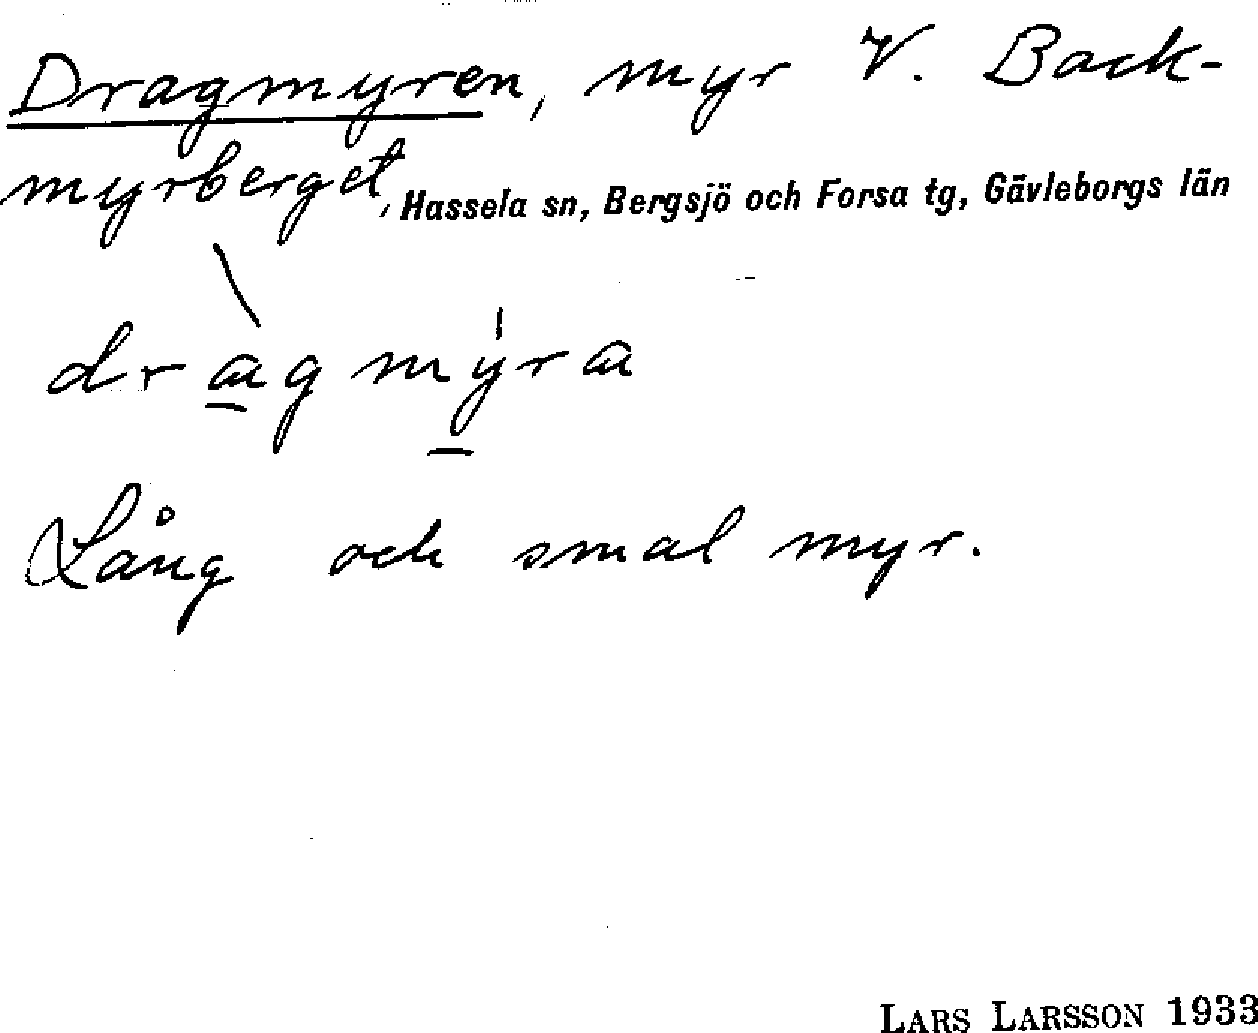 Dragmyren, myr V. Back-
myrberget, Hassela sn, Bergsjö och Forsa tg, Gävleborgs län
dràgmy̍ra
Lång och smal myr.
LARS LARSSON 1933